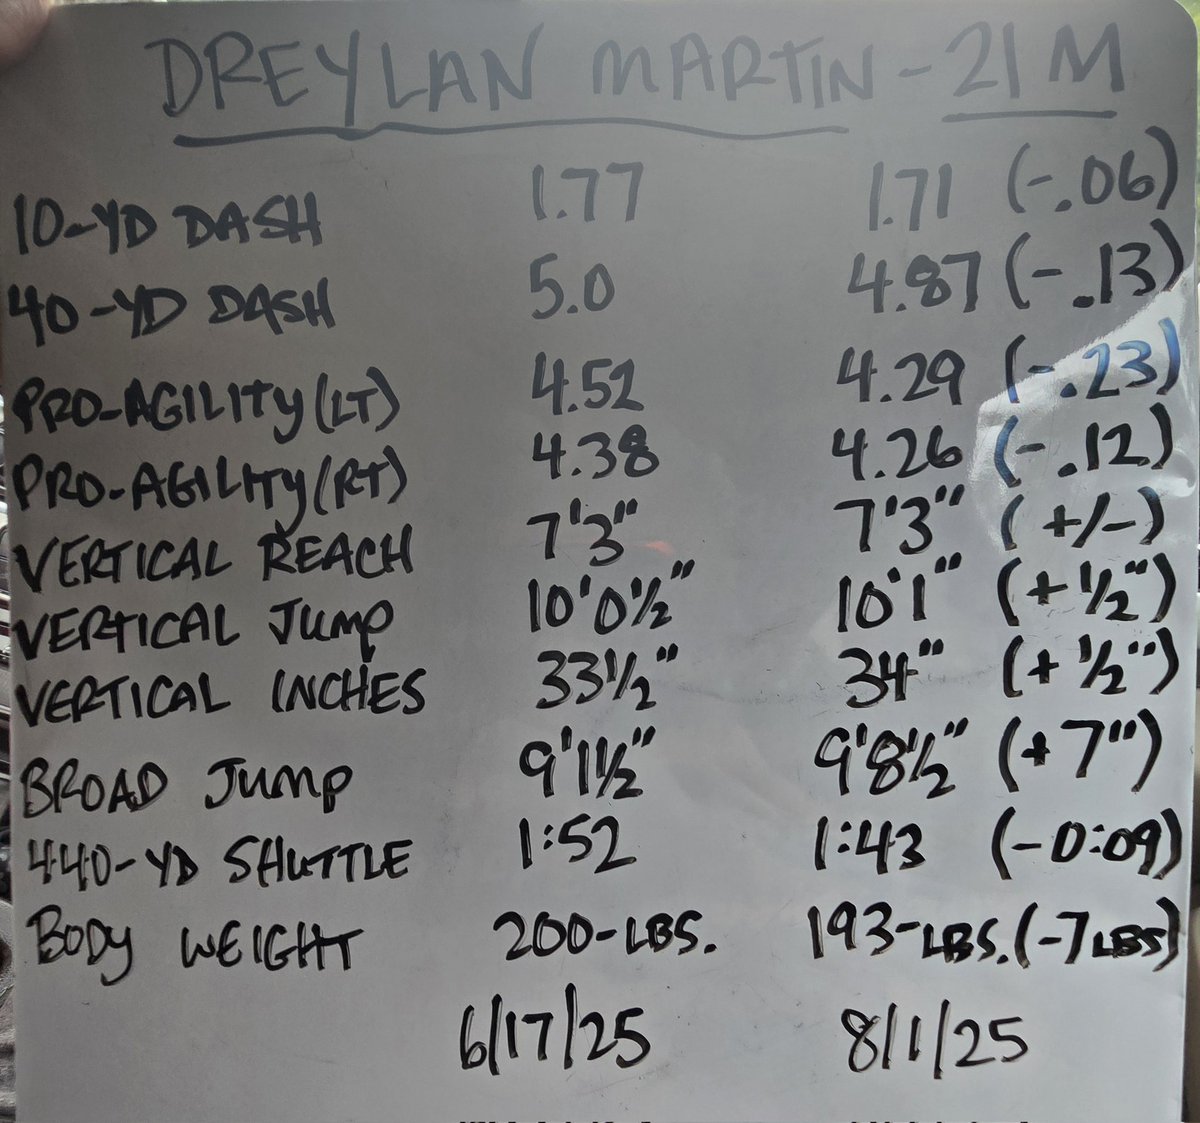 DREYLAN MARTIN - 21 M
10-YD DASH 1.77 1.71 (-.06)
40-YD DASH 5.0 4.87 (-.13)
PRO-AGILITY (LT) 4.52 4.29 (-.23)
PRO-AGILITY (RT) 4.38 4.26 (-.12)
VERTICAL REACH 7'3" 7'3" (+/-)
VERTICAL JUMP 10'0½" 10'1" (+½")
VERTICAL INCHES 33½" 34" (+½")
BROAD JUMP 9'1½" 9'8½" (+7")
440-YD SHUTTLE 1:52 1:43 (-0:09)
BODY WEIGHT 200-LBS. 193-LBS. (-7 LBS)
6/17/25 8/1/25